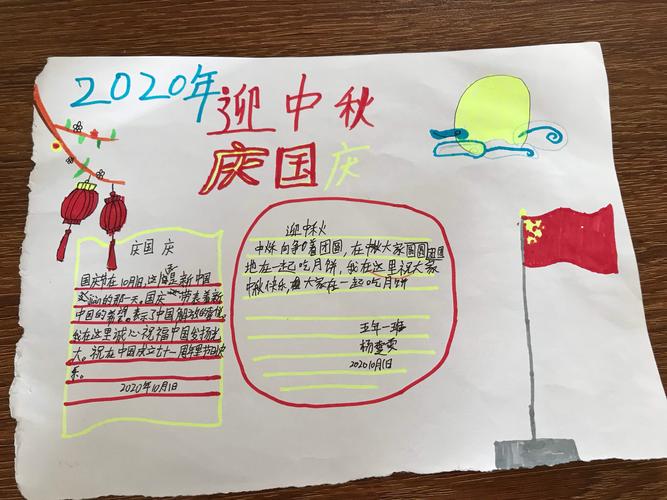 2020年
迎中秋
庆国庆
庆国庆
国庆节在10月1日这届是新中国
的那一天。国庆带表着新
中国的希望。表示了中国解放的喜悦
我在这里诚心祝福中国发扬光
大。祝在中国成立七十一周年里节日快
乐。
2020年10月1日
迎中秋
中秋向争着团圆,在中秋大家团圆团团
地在一起吃月饼,我在这里祝大家
中秋快乐,大家在一起吃月饼
五年一班
2020 10月1日